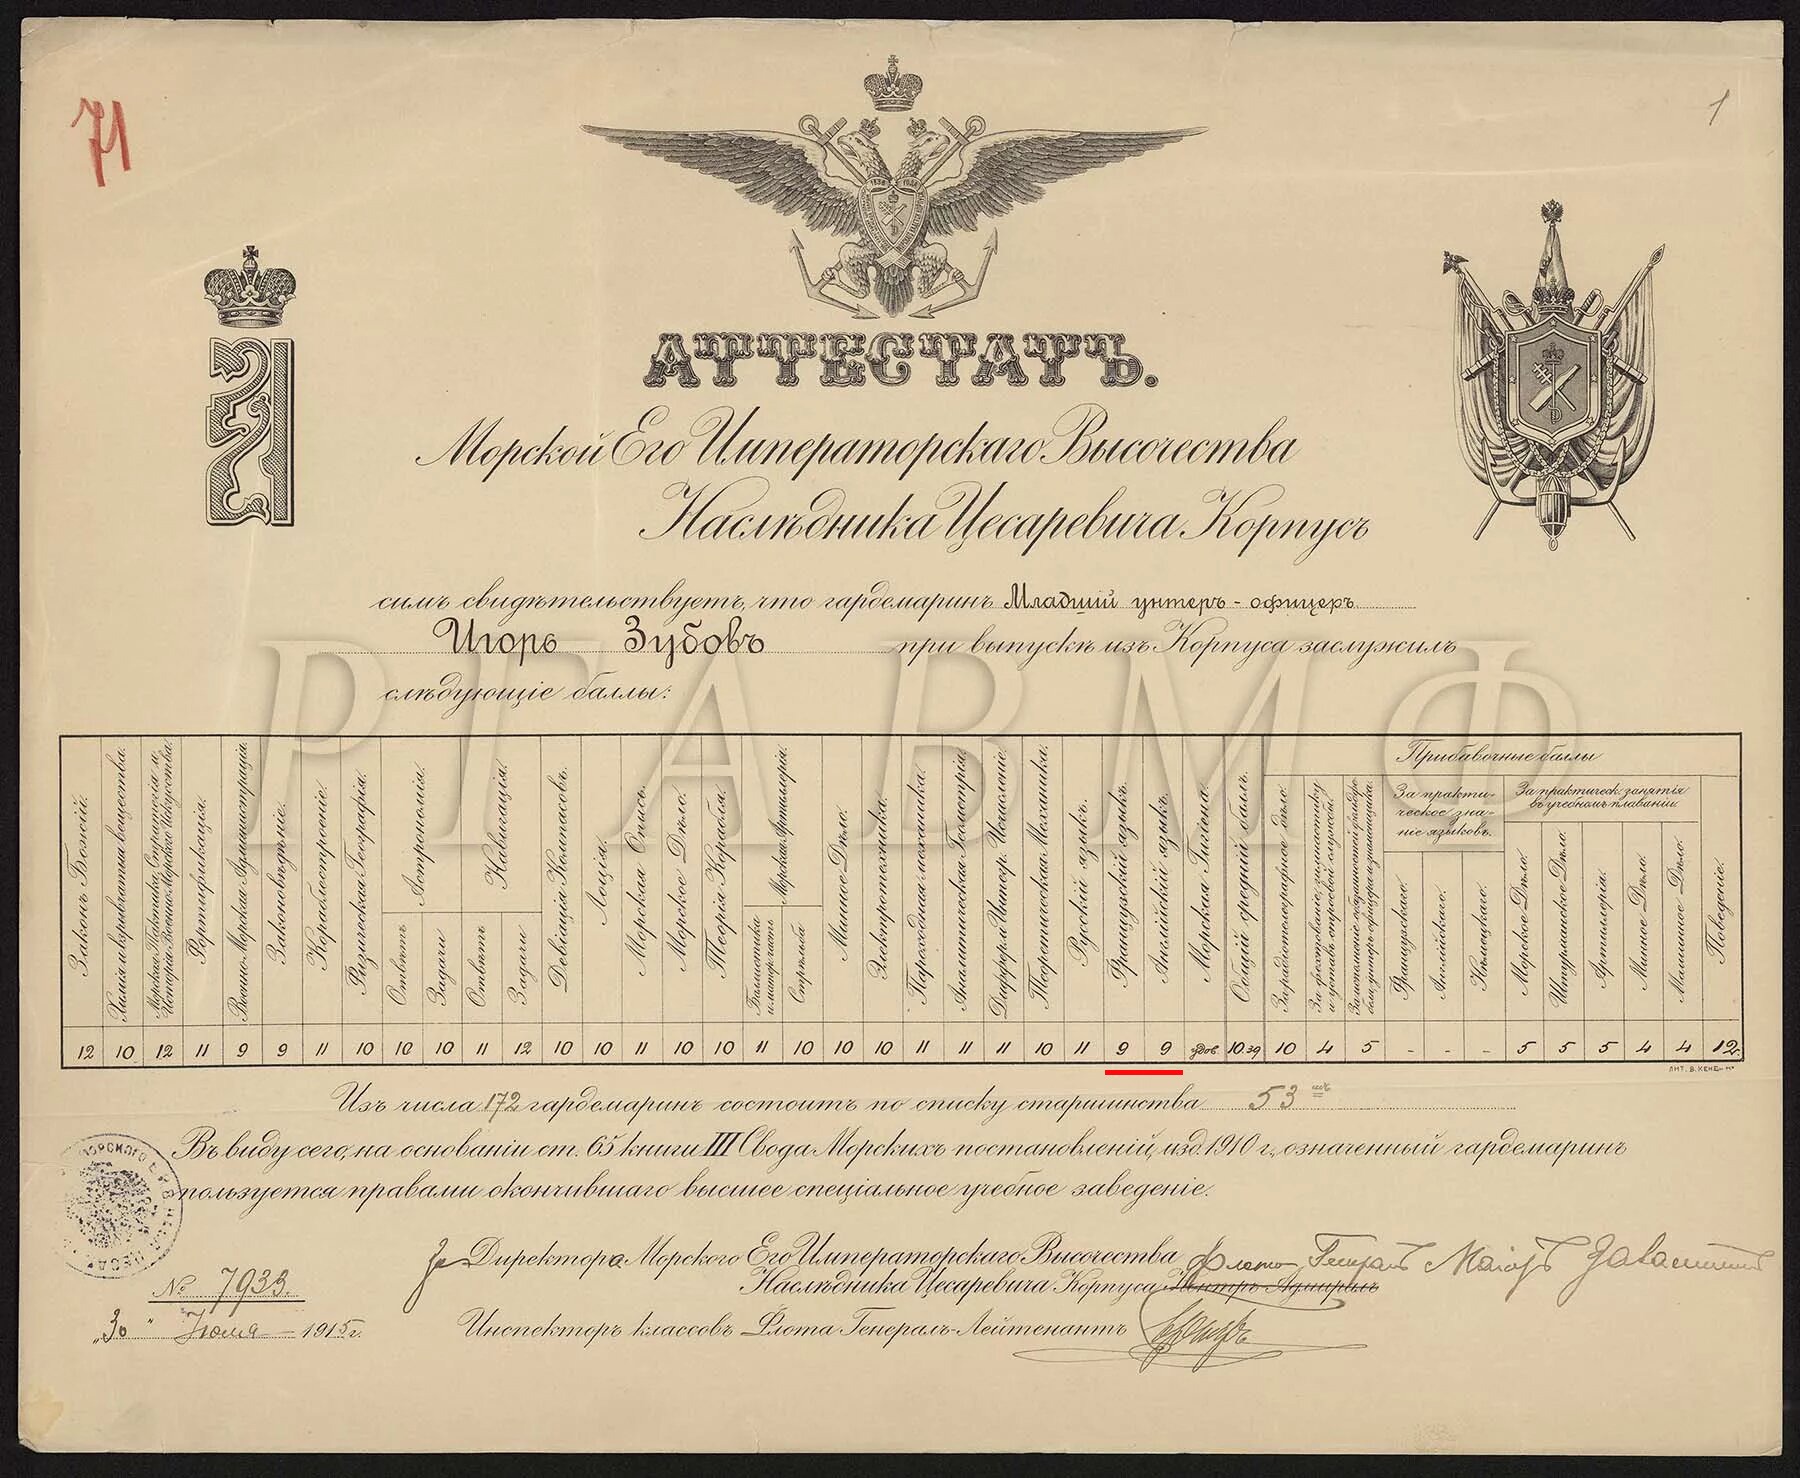 71
1
АТТЕСТАТЪ.
Морской Его Императорскаго Высочества
Наслѣдника Цесаревича Корпусъ
симъ свидѣтельствуетъ, что гардемаринъ Младшій унтеръ-офицеръ
Игорь Зубовъ при выпускѣ изъ Корпуса заслужилъ
слѣдующіе баллы:
РГАВМФ
Законъ Божій.
Химія и взрывчатыя вещества.
Морская Тактика, Стратегія и
Исторія Военно-Морского Искусства.
Фортификація.
Военно-Морская Администрація.
Законовѣдѣніе.
Кораблестроеніе.
Физическая Географія.
Астрономія.
Отвѣтъ
Задачи
Навигація.
Отвѣтъ
Задачи
Девіація Компасовъ.
Лоція.
Морская Опись.
Морское Дѣло.
Теорія Корабля.
Морская Артиллерія.
Баллистика
и матер. часть
Стрѣльба
Минное Дѣло.
Электротехника.
Пароходная механика.
Аналитическая Геометрія.
Диффер. и Интегр. Исчисленіе.
Теоретическая Механика.
Русскій языкъ.
Французскій языкъ.
Англійскій языкъ.
Морская Гигіена.
Общій средній баллъ.
Прибавочные баллы
За радіотелеграфное дѣло.
За фехтованіе, гимнастику
и уставъ строевой службы.
За практи-
ческое зна-
ніе языковъ.
Французскаго.
Англійскаго.
Нѣмецкаго.
За практическ. занятія
въ учебномъ плаваніи.
Морское Дѣло.
Штурманское Дѣло.
Артиллерія.
Минное Дѣло.
Машинное Дѣло.
Поведеніе.
12 10 12 11 9 9 11 10 10 10 11 12 10 10 11 10 10 11 10 10 10 11 11 11 10 11 9 9 удов. 10.39 10 4 5 - - - 5 5 5 4 4 12.
Изъ числа 172 гардемаринъ состоитъ по списку старшинства 53 мъ
Въ виду сего, на основаніи ст. 65 книги III Свода Морскихъ постановленій, изд. 1910 г., означенный гардемаринъ
пользуется правами окончившаго высшее спеціальное учебное заведеніе.
За Директора Морского Его Императорскаго Высочества Флота Генералъ Маіоръ
Наслѣдника Цесаревича Корпуса Контръ-Адмиралъ
№ 7933.
„30" Іюля 1915 г.
Инспекторъ классовъ Флота Генералъ-Лейтенантъ